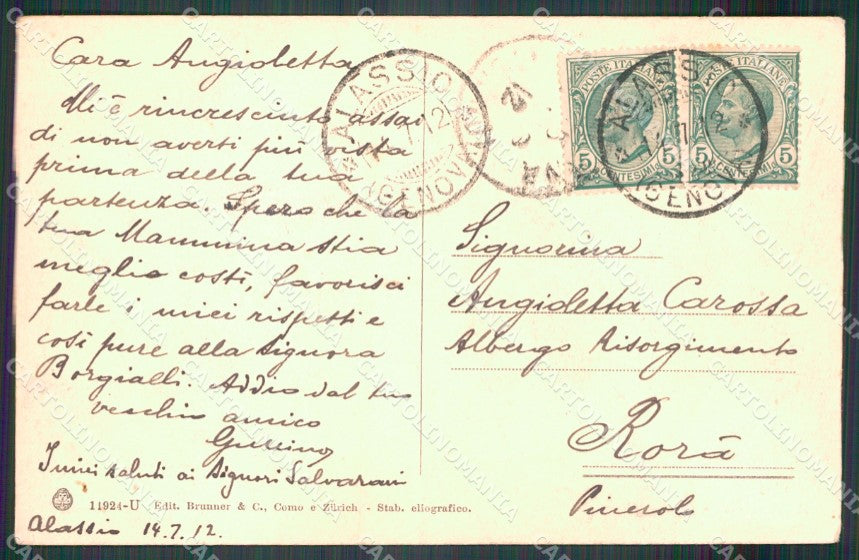 Cara Angioletta
Mi è rincresciuto assai
di non averti più vista
prima della tua
partenza. Spero che la
tua Mammina stia
meglio costì, favorisci
farle i miei rispetti e
così pure alla Signora
Borgialli. Addio dal tuo
vecchio amico
I miei saluti ai Signori Salvarani
11924-U Edit. Brunner & C., Como e Zürich - Stab. eliografico.
Alassio 14.7.12.
ALASSIO
(GENOVA)
POSTE ITALIANE
5 CENTESIMI 5
POSTE ITALIANE
5 CENTESIMI 5
ALASSIO
(GENOVA)
Signorina
Angioletta Carossa
Albergo Risorgimento
Rorà
Pinerolo
CARTOLINOMANIA